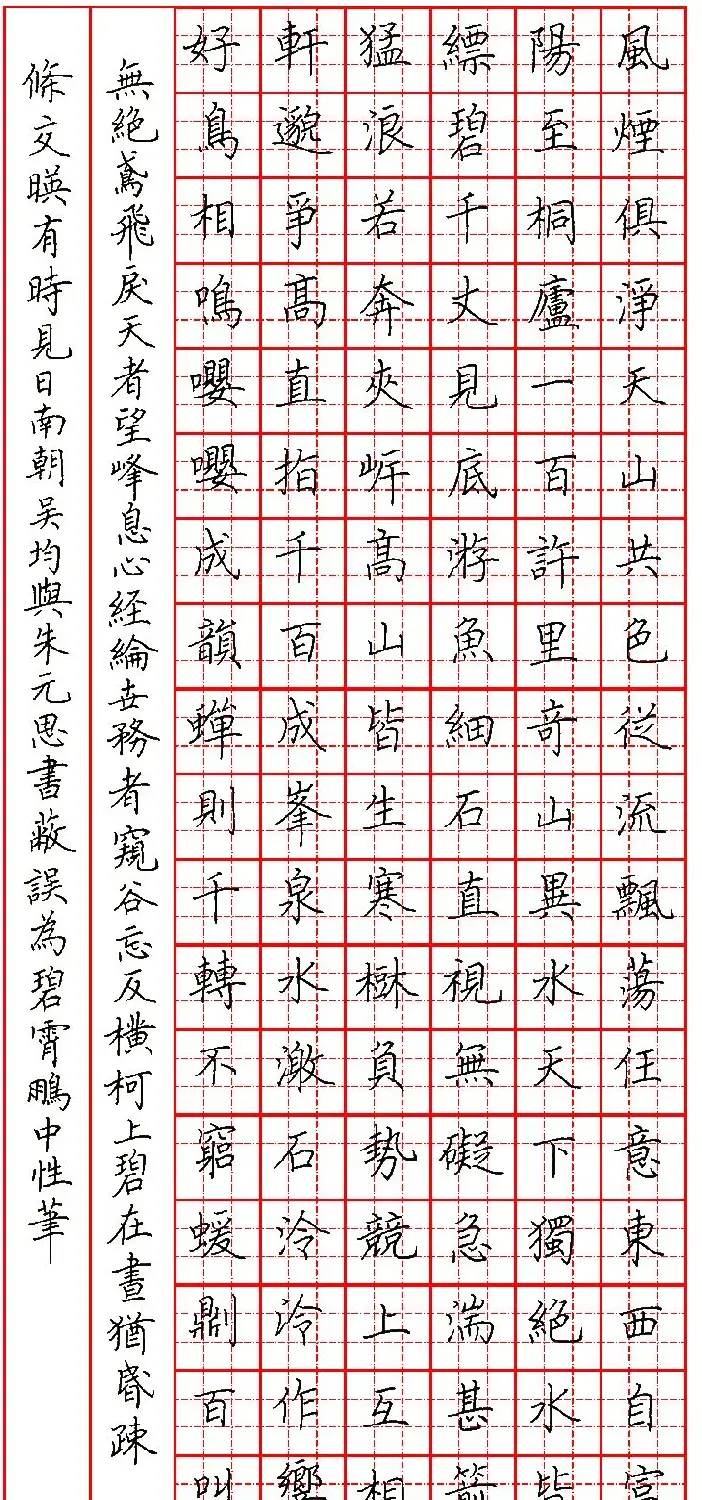 風煙俱淨天山共色從流飄蕩任意東西自富
陽至桐廬一百許里竒山異水天下獨絕水皆
縹碧千丈見底游魚細石直視無礙急湍甚箭
猛浪若奔夾岸高山皆生寒樹負勢競上互相
軒邈爭高直指千百成峯泉水激石泠泠作響
好鳥相鳴嚶嚶成韻蟬則千轉不窮蝯則百叫
無絕鳶飛戾天者望峰息心經綸世務者窺谷忘反橫柯上碧在晝猶昏疎
條交暎有時見日南朝吳均與朱元思書蔽誤為碧霄鵬中性筆